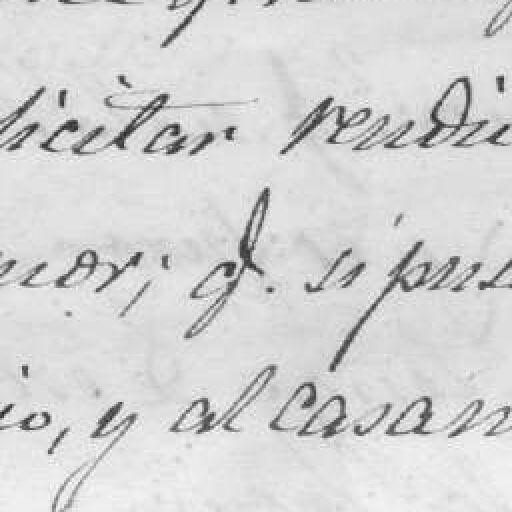 licitar rendi
mor; q. si pus
io, y al casam